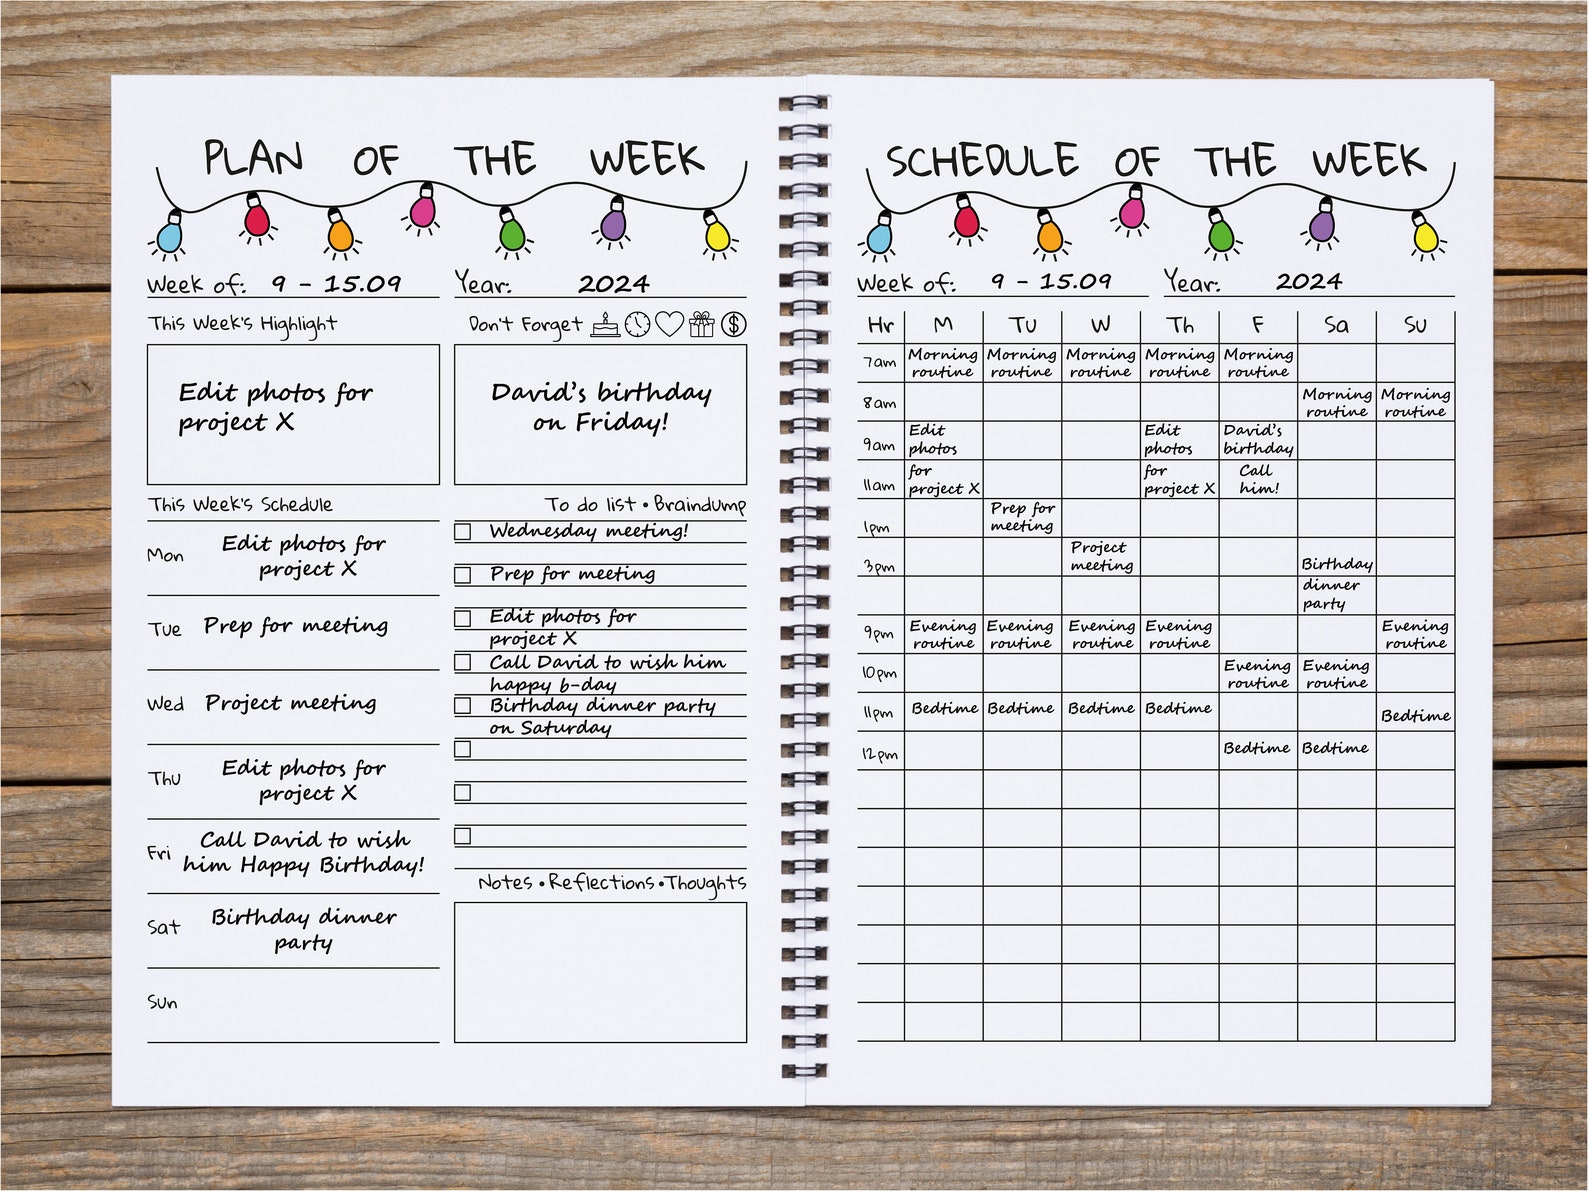 PLAN OF THE WEEK
Week of: 9 - 15.09 Year: 2024
This Week's Highlight
Edit photos for
project X
Don't Forget
$
David's birthday
on Friday!
This Week's Schedule
Mon Edit photos for
project X
Tue Prep for meeting
Wed Project meeting
Thu Edit photos for
project X
Fri Call David to wish
him Happy Birthday!
Sat Birthday dinner
party
Sun
To do list • Braindump
Wednesday meeting!
Prep for meeting
Edit photos for
project X
Call David to wish him
happy b-day
Birthday dinner party
on Saturday
Notes • Reflections • Thoughts
SCHEDULE OF THE WEEK
Week of: 9 - 15.09 Year: 2024
Hr M Tu W Th F Sa Su
7am Morning Morning Morning Morning Morning
routine routine routine routine routine
8am Morning Morning
routine routine
9am Edit Edit David's
photos photos birthday
11am for for Call
project X project X him!
1pm Prep for
meeting
3pm Project
meeting Birthday
dinner
party
9pm Evening Evening Evening Evening Evening
routine routine routine routine routine
10pm Evening Evening
routine routine
11pm Bedtime Bedtime Bedtime Bedtime Bedtime
12pm Bedtime Bedtime